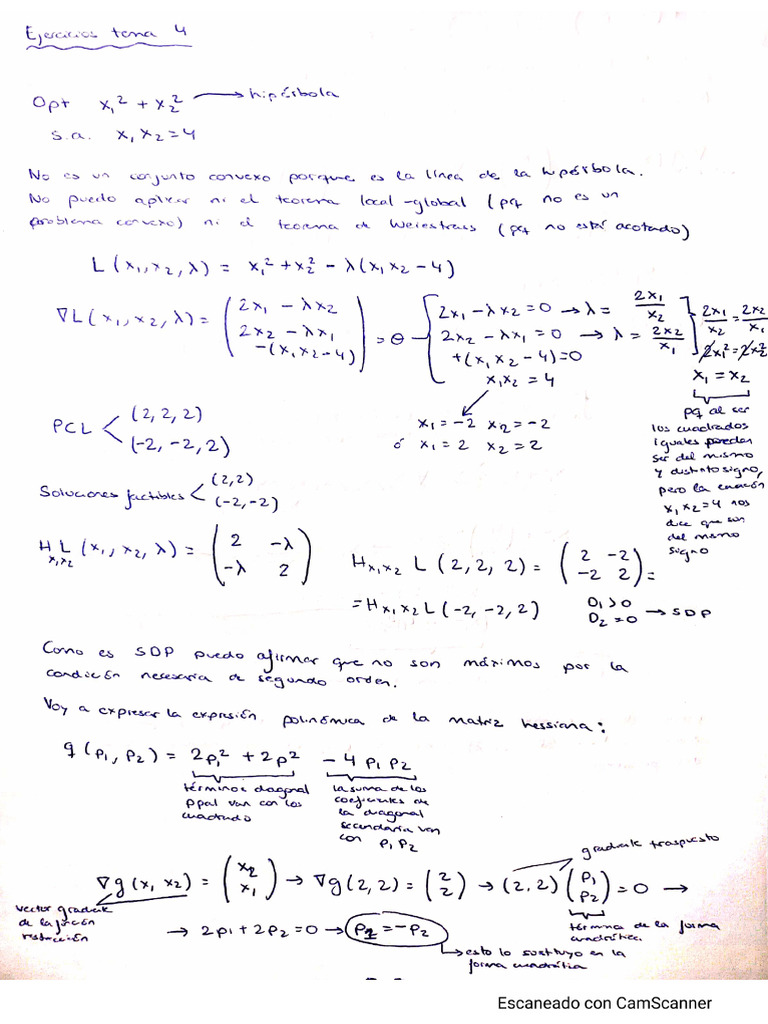 Ejercicios tema 4
Opt x₁² + x₂² → hipérbola
s.a. x₁x₂ = 4
No es un conjunto convexo porque es la línea de la hipérbola.
No puedo aplicar ni el teorema local-global (pq no es un
problema convexo) ni el teorema de Weiestrass (pq no está acotado)
L(x₁, x₂, λ) = x₁² + x₂² - λ(x₁x₂ - 4)
∇L(x₁, x₂, λ) = (2x₁ - λx₂
2x₂ - λx₁
-(x₁x₂ - 4)) = θ
2x₁ - λx₂ = 0 → λ = 2x₁/x₂
2x₂ - λx₁ = 0 → λ = 2x₂/x₁
+(x₁x₂ - 4) = 0
x₁x₂ = 4
2x₁/x₂ = 2x₂/x₁
2x₁² = 2x₂²
x₁ = x₂
pq al ser
los cuadrados
iguales pueden
ser del mismo
y distinto signo,
pero la ecuación
x₁x₂ = 4 nos
dice que son
del mismo
signo
x₁ = -2 x₂ = -2
ó x₁ = 2 x₂ = 2
PCL < (2, 2, 2)
(-2, -2, 2)
Soluciones factibles < (2, 2)
(-2, -2)
H L (x₁, x₂, λ) = (2 -λ
x₁x₂
-λ 2)
Hx₁x₂ L(2, 2, 2) = (2 -2
-2 2) =
= Hx₁x₂ L(-2, -2, 2)
D₁ > 0
D₂ = 0 → SDP
Como es SDP puedo afirmar que no son máximos por la
condición necesaria de segundo orden.
Voy a expresar la expresión polinómica de la matriz hessiana:
q(p₁, p₂) = 2p₁² + 2p² - 4p₁p₂
términos diagonal
ppal van con los
cuadrado
la suma de los
coeficientes de
la diagonal
secundaria van
con p₁p₂
gradiente traspuesto
∇g(x₁, x₂) = (x₂
x₁) → ∇g(2, 2) = (2
2) → (2, 2) (p₁
p₂) = 0 →
vector gradiente
de la función
restricción
términos de la forma
cuadrática
→ 2p₁ + 2p₂ = 0 → p₁ = -p₂
esto lo sustituyo en la
forma cuadrática
Escaneado con CamScanner